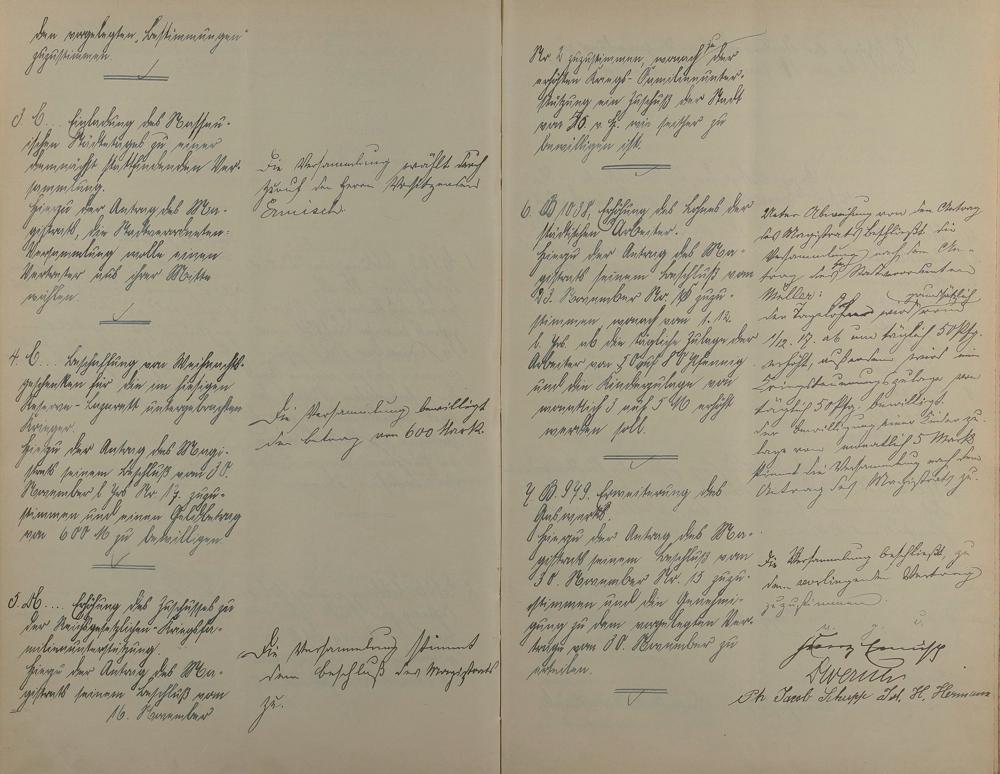 den vorgelegten "Bestimmungen"
zuzustimmen.
3. C.... Einladung des Nassau-
ischen Städtetages zu einer
demnächst stattfindenden Ver-
sammlung.
Hierzu der Antrag des Ma-
gistrats, die Stadtverordneten-
Versammlung wolle einen
Vertreter aus ihrer Mitte
wählen.
Die Versammlung wählt durch
Zuruf den Herrn Vorsitzenden
Emisch.
4. C... Beschaffung von Weihnachts-
geschenken für die im hiesigen
Reserve-Lazarett untergebrachten
Krieger.
Hierzu der Antrag des Magi-
strats seinem Beschluß vom 30.
November l. Jrs. Nr. 17. zuzu-
stimmen und einen Geldbetrag
von 600 M zu bewilligen.
Die Versammlung bewilligt
den Betrag von 600 Mark.
5. .... Erhöhung des Zuschusses zu
der Reichsgesetzlichen-Kriegsfa-
milienunterstützung.
Hierzu der Antrag des Ma-
gistrats seinem Beschluß vom
16. November
Die Versammlung stimmt
dem Beschluß des Magistrats
zu.
Nr. 2 zuzustimmen, wonach zu der
erhöhten Kriegs-Familienunter-
stützung ein Zuschuß der Stadt
von v. H. wie seither zu
bewilligen ist.
6. B 1038. Erhöhung des Lohnes der
städtischen Arbeiter.
Hierzu der Antrag des Ma-
gistrats seinem Beschluß vom
23. November Nr. zuzu-
stimmen, wonach vom 1. 12.
l. Jrs. ab die tägliche Zulage der
Arbeiter von 50 auf 80 Pfennig
und die Kinderzulage von
monatlich 3 auf 5 M erhöht
werden soll.
Unter Abweisung von dem Antrag
des Magistrats beschließt die
Versammlung nach dem An-
trag des Stadtverordneten
Müller:
Der Tagelohn wird grundsätzlich vom
1/12. 17. ab um täglich 50 Pfg.
erhöht, außerdem wird eine
Kriegsteuerungszulage von
täglich 50 Pfg. bewilligt.
Der Bewilligung einer Kinderzu-
lage von monatlich 5 Mark
stimmt die Versammlung nach dem
Antrag des Magistrats zu.
7. B. 979. Erweiterung des
Gaswerks.
Hierzu der Antrag des Ma-
gistrats seinem Beschluß vom
30. November Nr. 15 zuzu-
stimmen und die Genehmi-
gung zu dem vorgelegten Ver-
trage vom 30. November zu
erteilen.
Die Versammlung beschließt, zu
dem vorliegenden Vertrag
zuzustimmen.
Emisch
Ph Jacob Schupp Jos. H. Hermann